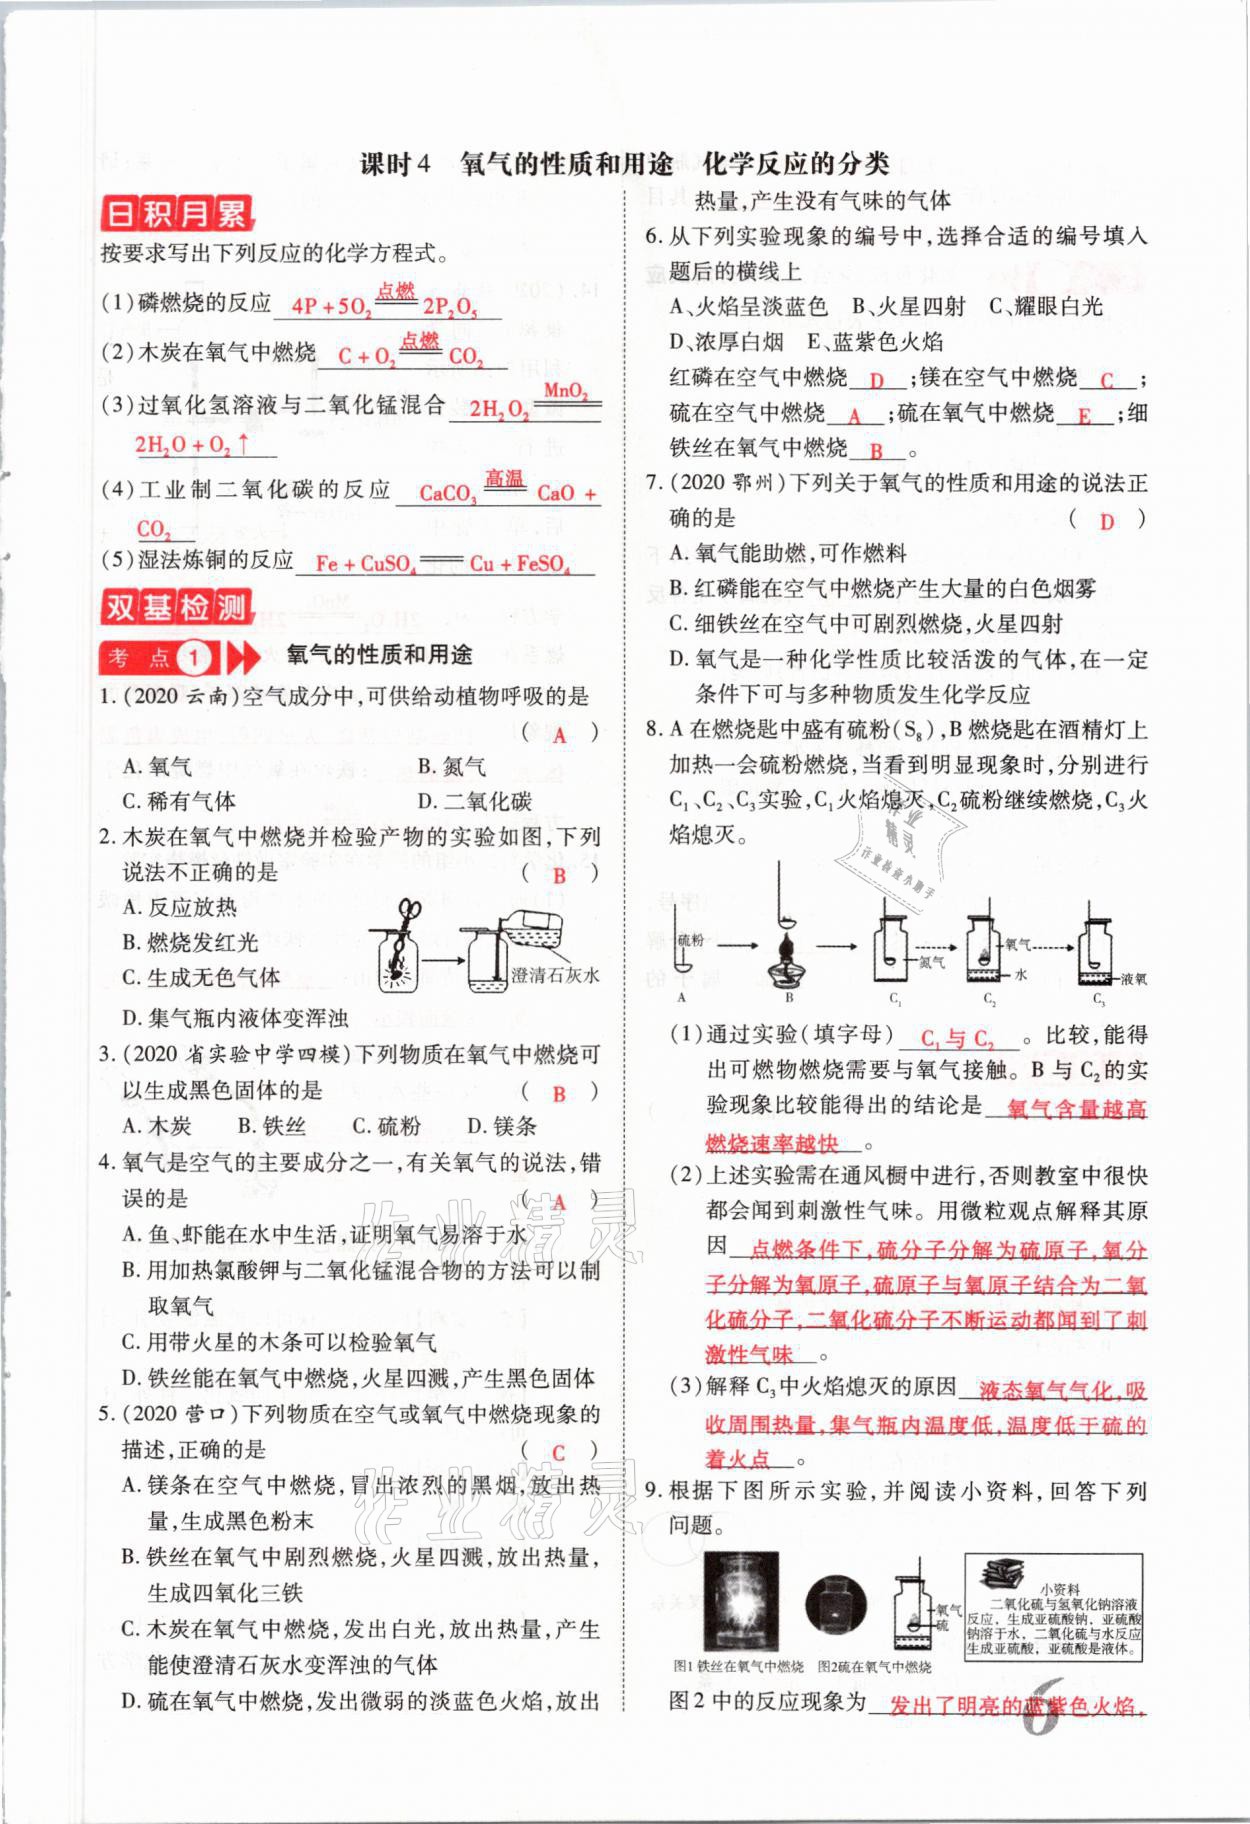 课时4 氧气的性质和用途 化学反应的分类
日积月累
按要求写出下列反应的化学方程式。
(1)磷燃烧的反应 4P+5O₂ 点燃 2P₂O₅
(2)木炭在氧气中燃烧 C+O₂ 点燃 CO₂
(3)过氧化氢溶液与二氧化锰混合 2H₂O₂ MnO₂
2H₂O+O₂↑
(4)工业制二氧化碳的反应 CaCO₃ 高温 CaO+
CO₂
(5)湿法炼铜的反应 Fe+CuSO₄ == Cu+FeSO₄
双基检测
考点1 氧气的性质和用途
1.(2020云南)空气成分中,可供给动植物呼吸的是
( A )
A.氧气 B.氮气
C.稀有气体 D.二氧化碳
2.木炭在氧气中燃烧并检验产物的实验如图,下列
说法不正确的是 ( B )
A.反应放热
B.燃烧发红光
C.生成无色气体
澄清石灰水
D.集气瓶内液体变浑浊
3.(2020省实验中学四模)下列物质在氧气中燃烧可
以生成黑色固体的是 ( B )
A.木炭 B.铁丝 C.硫粉 D.镁条
4.氧气是空气的主要成分之一,有关氧气的说法,错
误的是 ( A )
A.鱼、虾能在水中生活,证明氧气易溶于水
B.用加热氯酸钾与二氧化锰混合物的方法可以制
取氧气
C.用带火星的木条可以检验氧气
D.铁丝能在氧气中燃烧,火星四溅,产生黑色固体
5.(2020营口)下列物质在空气或氧气中燃烧现象的
描述,正确的是 ( C )
A.镁条在空气中燃烧,冒出浓烈的黑烟,放出热
量,生成黑色粉末
B.铁丝在氧气中剧烈燃烧,火星四溅,放出热量,
生成四氧化三铁
C.木炭在氧气中燃烧,发出白光,放出热量,产生
能使澄清石灰水变浑浊的气体
D.硫在氧气中燃烧,发出微弱的淡蓝色火焰,放出
热量,产生没有气味的气体
6.从下列实验现象的编号中,选择合适的编号填入
题后的横线上
A、火焰呈淡蓝色 B、火星四射 C、耀眼白光
D、浓厚白烟 E、蓝紫色火焰
红磷在空气中燃烧 D ;镁在空气中燃烧 C ;
硫在空气中燃烧 A ;硫在氧气中燃烧 E ;细
铁丝在氧气中燃烧 B 。
7.(2020鄂州)下列关于氧气的性质和用途的说法正
确的是 ( D )
A.氧气能助燃,可作燃料
B.红磷能在空气中燃烧产生大量的白色烟雾
C.细铁丝在空气中可剧烈燃烧,火星四射
D.氧气是一种化学性质比较活泼的气体,在一定
条件下可与多种物质发生化学反应
8.A在燃烧匙中盛有硫粉(S₈),B燃烧匙在酒精灯上
加热一会硫粉燃烧,当看到明显现象时,分别进行
C₁、C₂、C₃实验,C₁火焰熄灭,C₂硫粉继续燃烧,C₃火
焰熄灭。
硫粉 氮气 氧气 水 液氧
A B C₁ C₂ C₃
(1)通过实验(填字母) C₁与C₂ 。比较,能得
出可燃物燃烧需要与氧气接触。B与C₂的实
验现象比较能得出的结论是 氧气含量越高
燃烧速率越快 。
(2)上述实验需在通风橱中进行,否则教室中很快
都会闻到刺激性气味。用微粒观点解释其原
因 点燃条件下,硫分子分解为硫原子,氧分
子分解为氧原子,硫原子与氧原子结合为二氧
化硫分子,二氧化硫分子不断运动都闻到了刺
激性气味 。
(3)解释C₃中火焰熄灭的原因 液态氧气气化,吸
收周围热量,集气瓶内温度低,温度低于硫的
着火点 。
9.根据下图所示实验,并阅读小资料,回答下列
问题。
氧气
硫
小资料
二氧化硫与氢氧化钠溶液
反应,生成亚硫酸钠,亚硫酸
钠溶于水,二氧化硫与水反应
生成亚硫酸,亚硫酸是液体。
图1铁丝在氧气中燃烧 图2硫在氧气中燃烧
图2中的反应现象为 发出了明亮的蓝紫色火焰,
6
作业精灵
作业精灵
作业
精灵
作业检查小助手